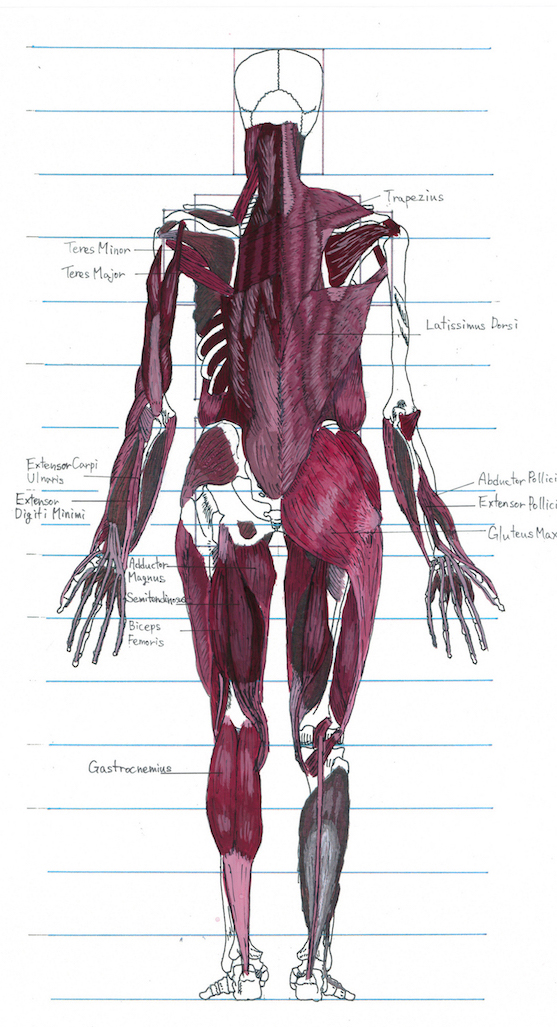 Trapezius
Teres Minor
Teres Major
Latissimus Dorsi
Extensor Carpi
Ulnaris
Extensor
Digiti Minimi
Abductor Pollici
Extensor Pollici
Gluteus Max
Adductor
Magnus
Semitendinosus
Biceps
Femoris
Gastrocnemius